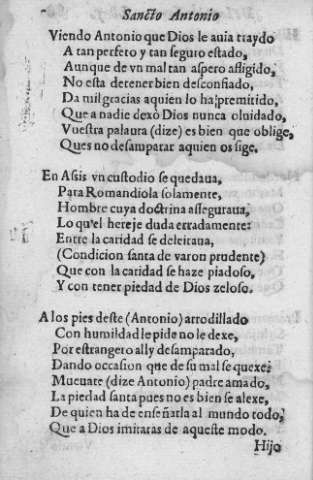 Sancto Antonio
Viendo Antonio que Dios le auia traydo
A tan perfeto y tan seguro estado,
Aunque de vn mal tan aspero afligido,
No esta de tener bien desconfiado,
Da mil gracias aquien lo ha premitido,
Que a nadie dexò Dios nunca oluidado,
Vuestra palaura (dize) es bien que oblige,
Ques no desamparar aquien os sige.
En Assis vn custodio se quedaua,
Para Romandiola solamente,
Hombre cuya doctrina asseguraua,
Lo qu'el hereje duda erradamente:
Entre la caridad se deleitaua,
(Condicion santa de varon prudente)
Que con la caridad se haze piadoso,
Y con tener piedad de Dios zeloso.
A los pies deste (Antonio) arrodillado
Con humildad le pide no le dexe,
Por estrangero all y desamparado,
Dando occasion que de su mal se quexe:
Mueuate (dize Antonio) padre amado,
La piedad santa pues no es bien se alexe,
De quien ha de enseñarla al mundo todo,
Que a Dios imitaras de aqueste modo.
Hijo